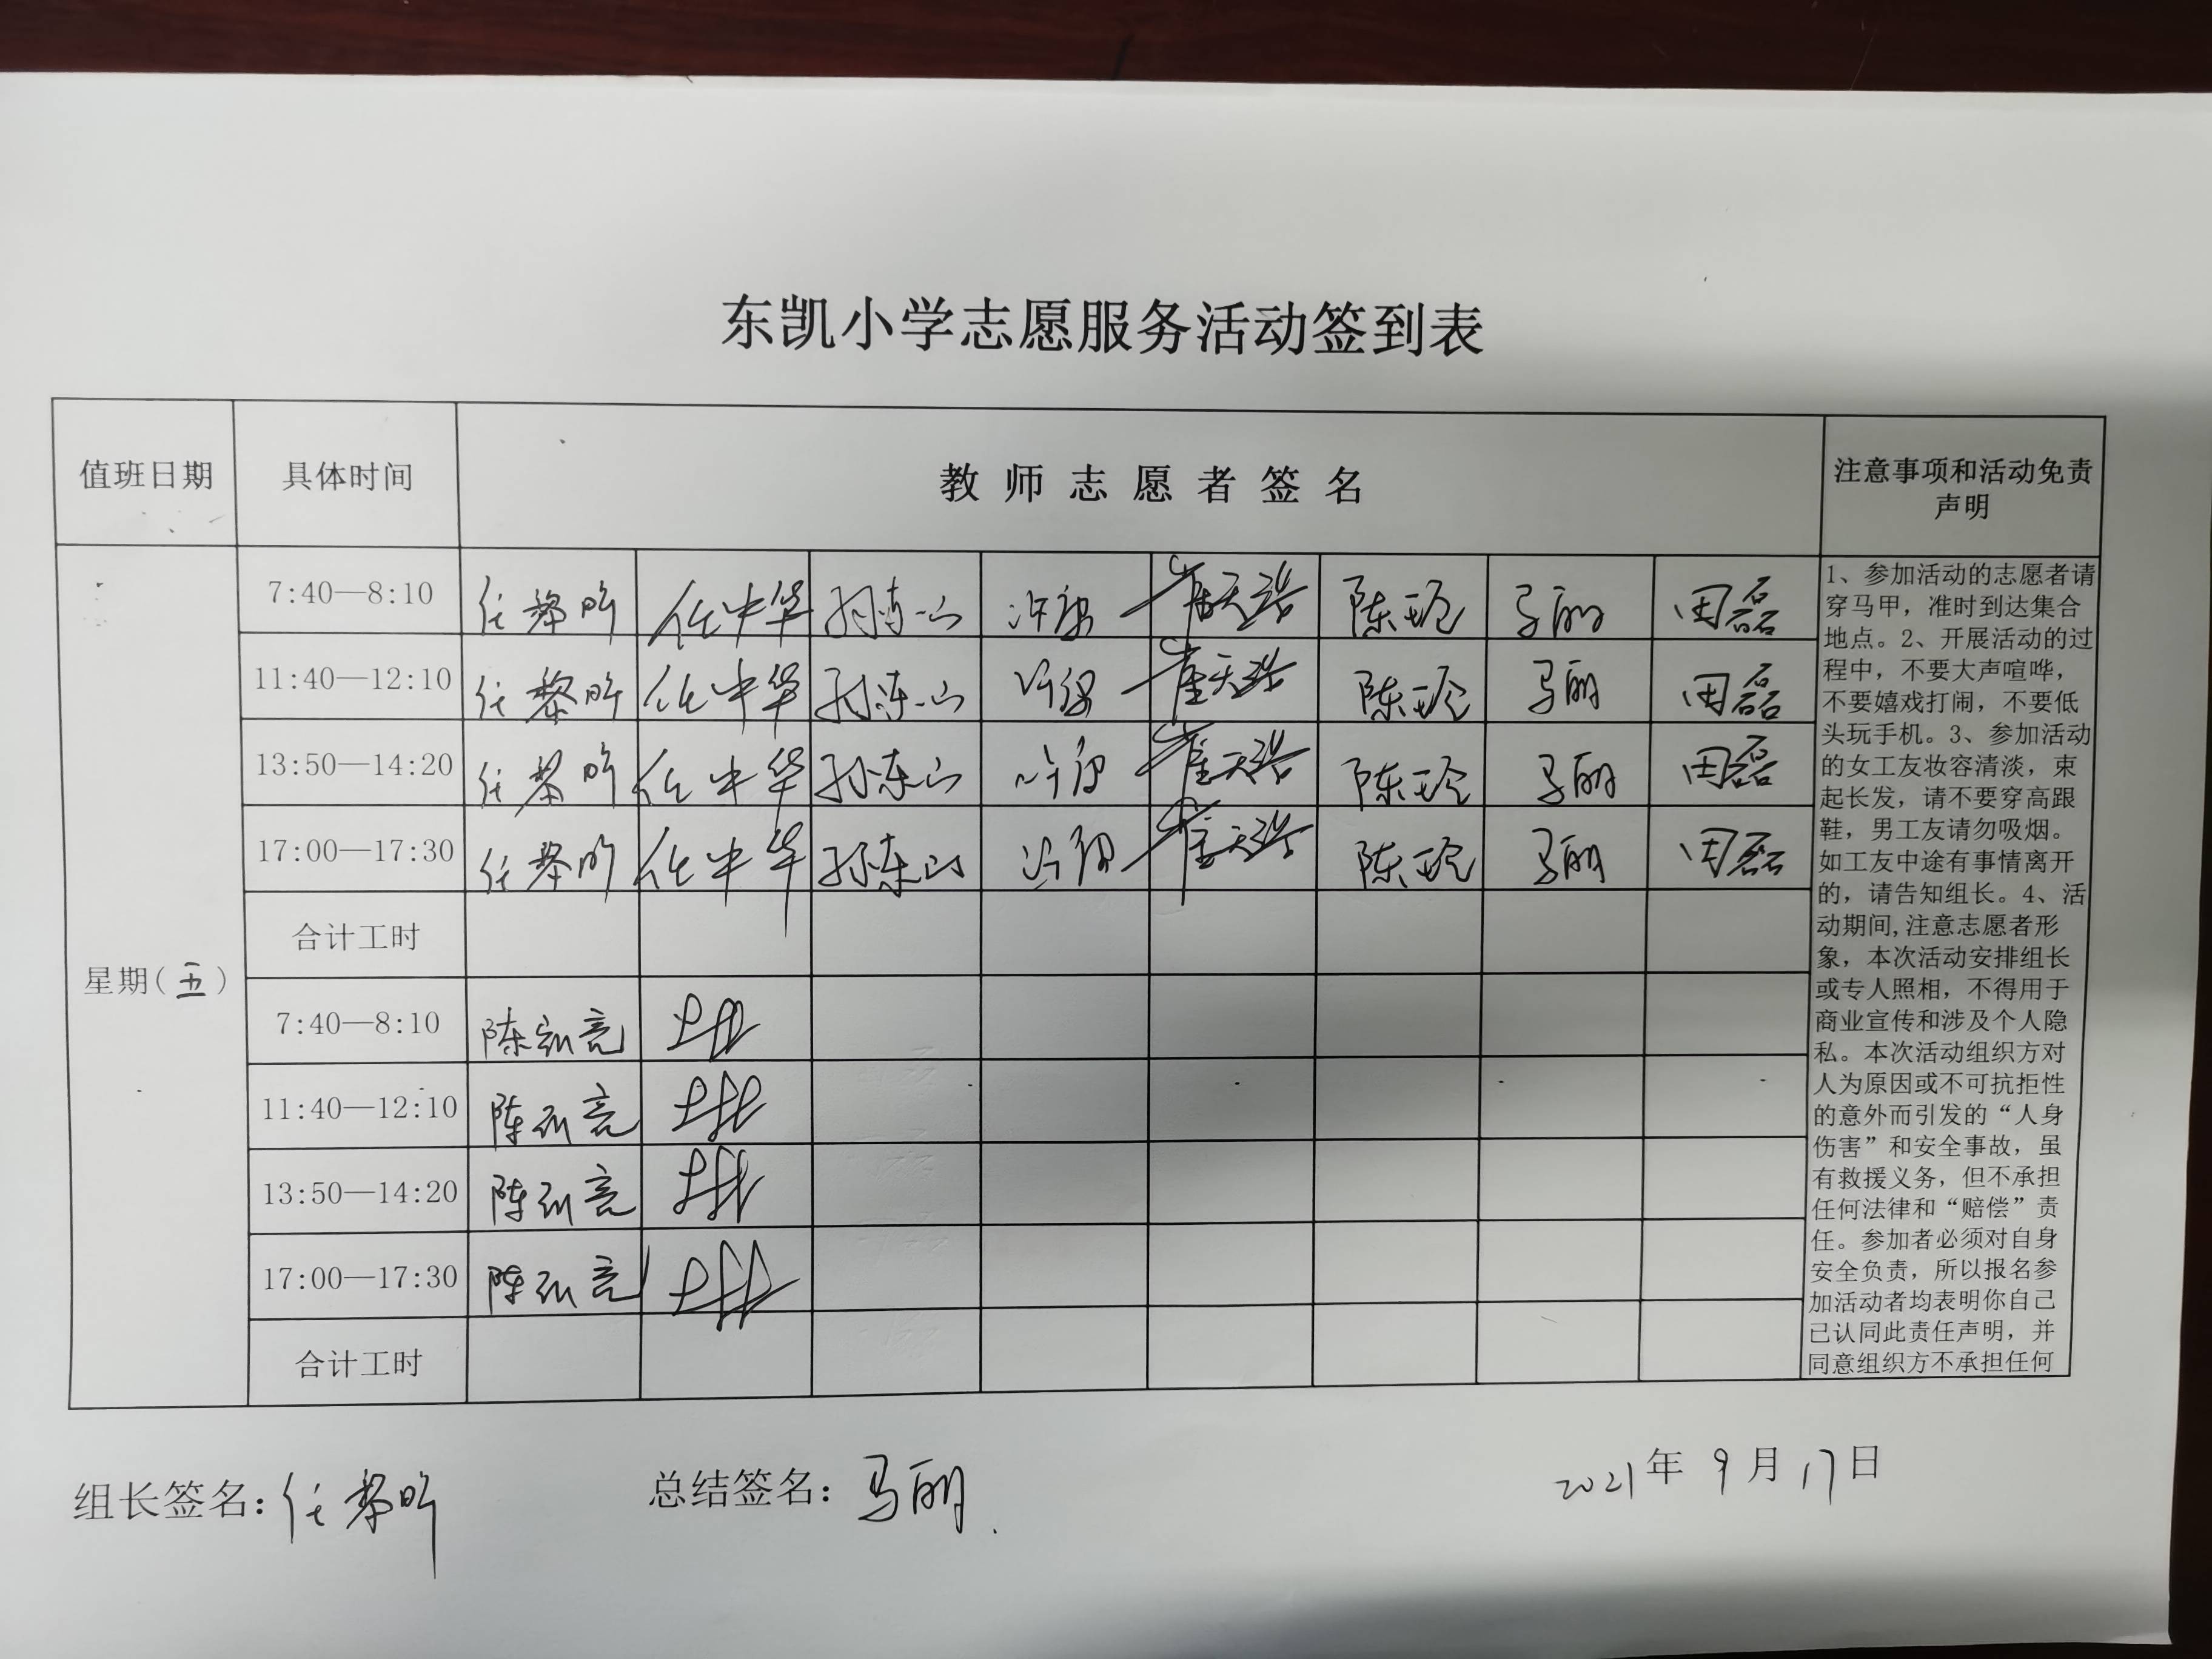 东凯小学志愿服务活动签到表
值班日期 具体时间 教师志愿者签名 注意事项和活动免责
声明
星期(五)
7:40—8:10 任黎昕 任中华 孙东山 崔天浩 陈琼 马丽 田磊
11:40—12:10 任黎昕 任中华 孙东山 崔天浩 陈琼 马丽 田磊
13:50—14:20 任黎昕 任中华 孙东山 崔天浩 陈琼 马丽 田磊
17:00—17:30 任黎昕 任中华 孙东山 崔天浩 陈琼 马丽 田磊
合计工时
7:40—8:10
11:40—12:10
13:50—14:20
17:00—17:30
合计工时
1、参加活动的志愿者请
穿马甲，准时到达集合
地点。2、开展活动的过
程中，不要大声喧哗，
不要嬉戏打闹，不要低
头玩手机。3、参加活动
的女工友妆容清淡，束
起长发，请不要穿高跟
鞋，男工友请勿吸烟。
如工友中途有事情离开
的，请告知组长。4、活
动期间,注意志愿者形
象，本次活动安排组长
或专人照相，不得用于
商业宣传和涉及个人隐
私。本次活动组织方对
人为原因或不可抗拒性
的意外而引发的“人身
伤害”和安全事故，虽
有救援义务，但不承担
任何法律和“赔偿”责
任。参加者必须对自身
安全负责，所以报名参
加活动者均表明你自己
已认同此责任声明，并
同意组织方不承担任何
组长签名:任黎昕 总结签名:马丽 2021年9月17日